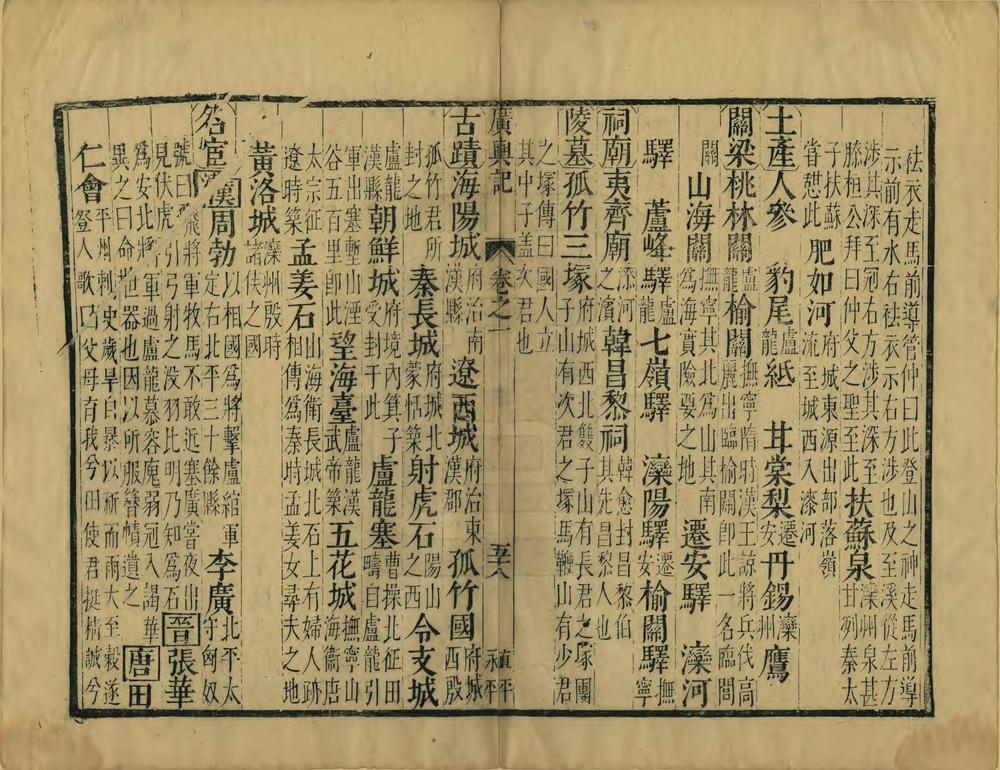 袪衣走馬前導管仲曰此登山之神走馬前導
示前有水右袪衣示右方涉也及至溪從左方
涉其深至冠右方涉其深至膝桓公拜曰仲父之聖至此扶蘇泉灤州泉甚甘列秦太
子扶蘇甞憇此肥如河府城東源出部落嶺流至城西入漆河
土產人參豹尾盧龍紙甘棠梨遷安丹錫灤州鷹
關梁桃林關盧龍榆關撫寧隋時漢王諒將兵伐高麗出臨榆關即此一名臨閭
關山海關撫寧其北為山其南為海實險要之地遷安驛灤河
驛蘆峰驛盧龍七嶺驛灤陽驛遷安榆關驛撫寧
祠廟夷齊廟漆河之濱韓昌黎祠韓愈封昌黎伯其先昌黎人也
陵墓孤竹三塚府城西北雙子山有長君之塚團子山有次君之塚馬鞭山有少君
之塚傳曰國人立其中子蓋次君也
廣輿記 卷之一 五十八 永平
古蹟海陽城府治南漢縣遼西城府治東漢郡孤竹國府城西殷
孤竹君所封之地秦長城府城北蒙恬築射虎石陽山之西令支城
盧龍漢縣朝鮮城府境內箕子受封于此盧龍塞曹操北征田疇自盧龍引
軍出塞塹山湮谷五百里即此望海臺盧龍漢武帝築五花城撫寧山海衞唐
太宗征遼時築孟姜石山海衞長城北石上有婦人跡相傳為秦時孟姜女尋夫之地
黃落城灤州殷時諸侯之國
名宦漢周勃以相國為將擊盧綰軍定右北平三十餘縣李廣北平太守匈奴
號曰飛將軍牧馬不敢近塞廣嘗夜出見伏虎引弓射之没羽比明乃知為石晉張華
為安北將軍過盧龍慕容廆弱冠入謁華異之曰命世器也因以所服簪幘遺之唐田
仁會平州刺史歲旱自暴以祈而雨大至穀遂登人歌曰父母育我兮田使君挺精誠兮